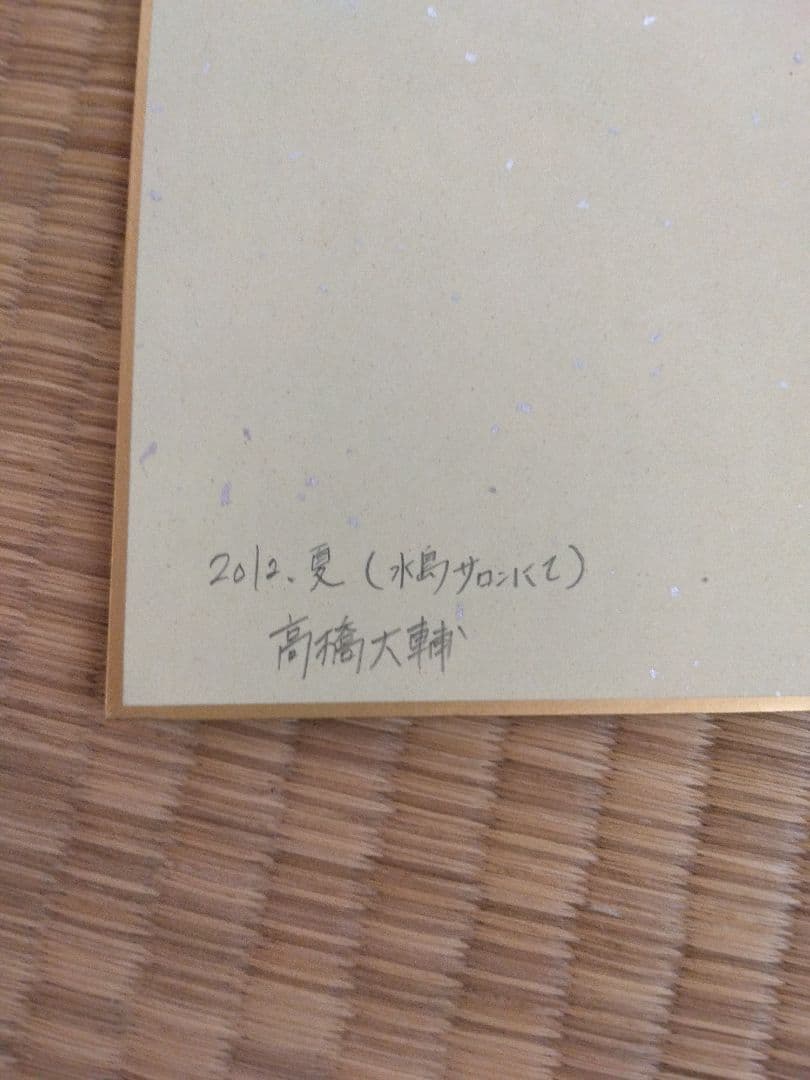 2012.夏(水島サロンにて)
高橋大輔